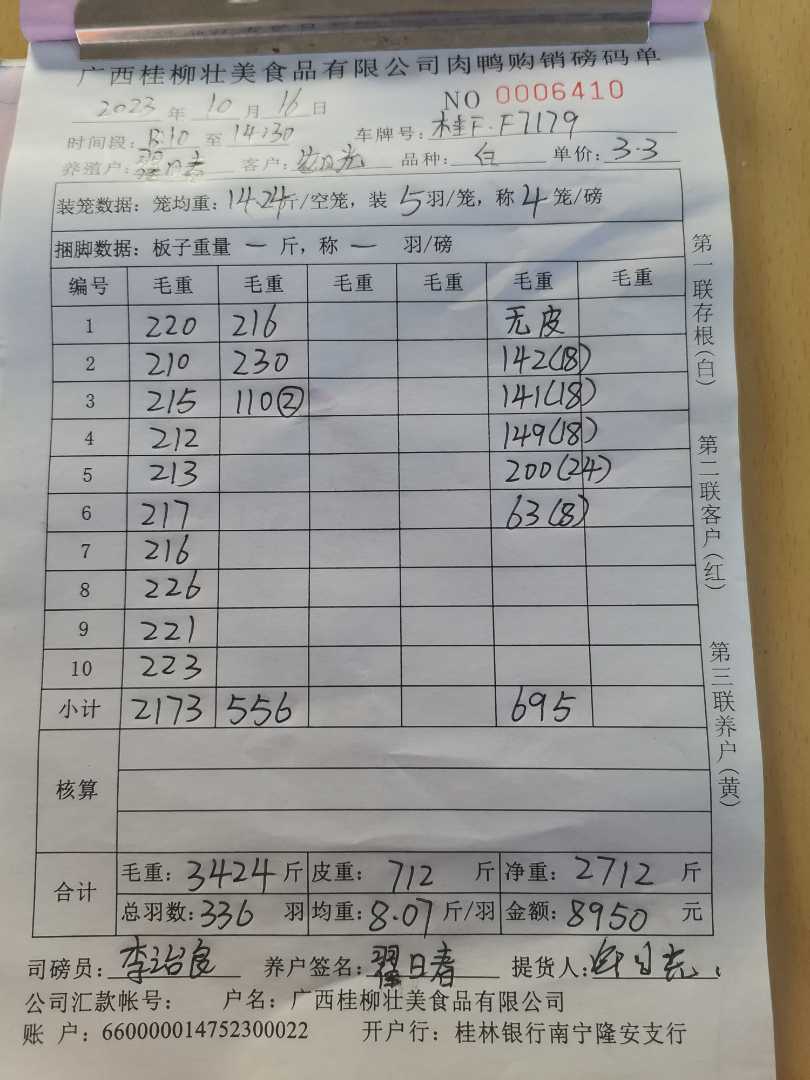 广西桂柳壮美食品有限公司肉鸭购销磅码单
2023 年 10 月 16 日 NO 0006410
时间段: 至 14:30 车牌号: 桂F·F7179
养殖户: 翟日春 客户: 品种: 白 单价: 3.3
装笼数据: 笼均重: 14.24斤/空笼, 装 5 羽/笼, 称 4 笼/磅
捆脚数据: 板子重量 一 斤, 称 一 羽/磅
编号 毛重 毛重 毛重 毛重 毛重 毛重
1 220 216 无皮
2 210 230 142(18)
3 215 110② 141(18)
4 212 149(18)
5 213 200(24)
6 217 63(8)
7 216
8 226
9 221
10 223
小计 2173 556 695
核算
合计
毛重: 3424 斤 皮重: 712 斤 净重: 2712 斤
总羽数: 336 羽 均重: 8.07 斤/羽 金额: 8950 元
司磅员: 李治良 养户签名: 翟日春 提货人:
公司汇款帐号: 户名: 广西桂柳壮美食品有限公司
账 户: 660000014752300022 开户行: 桂林银行南宁隆安支行
第一联存根(白)
第二联客户(红)
第三联养户(黄)